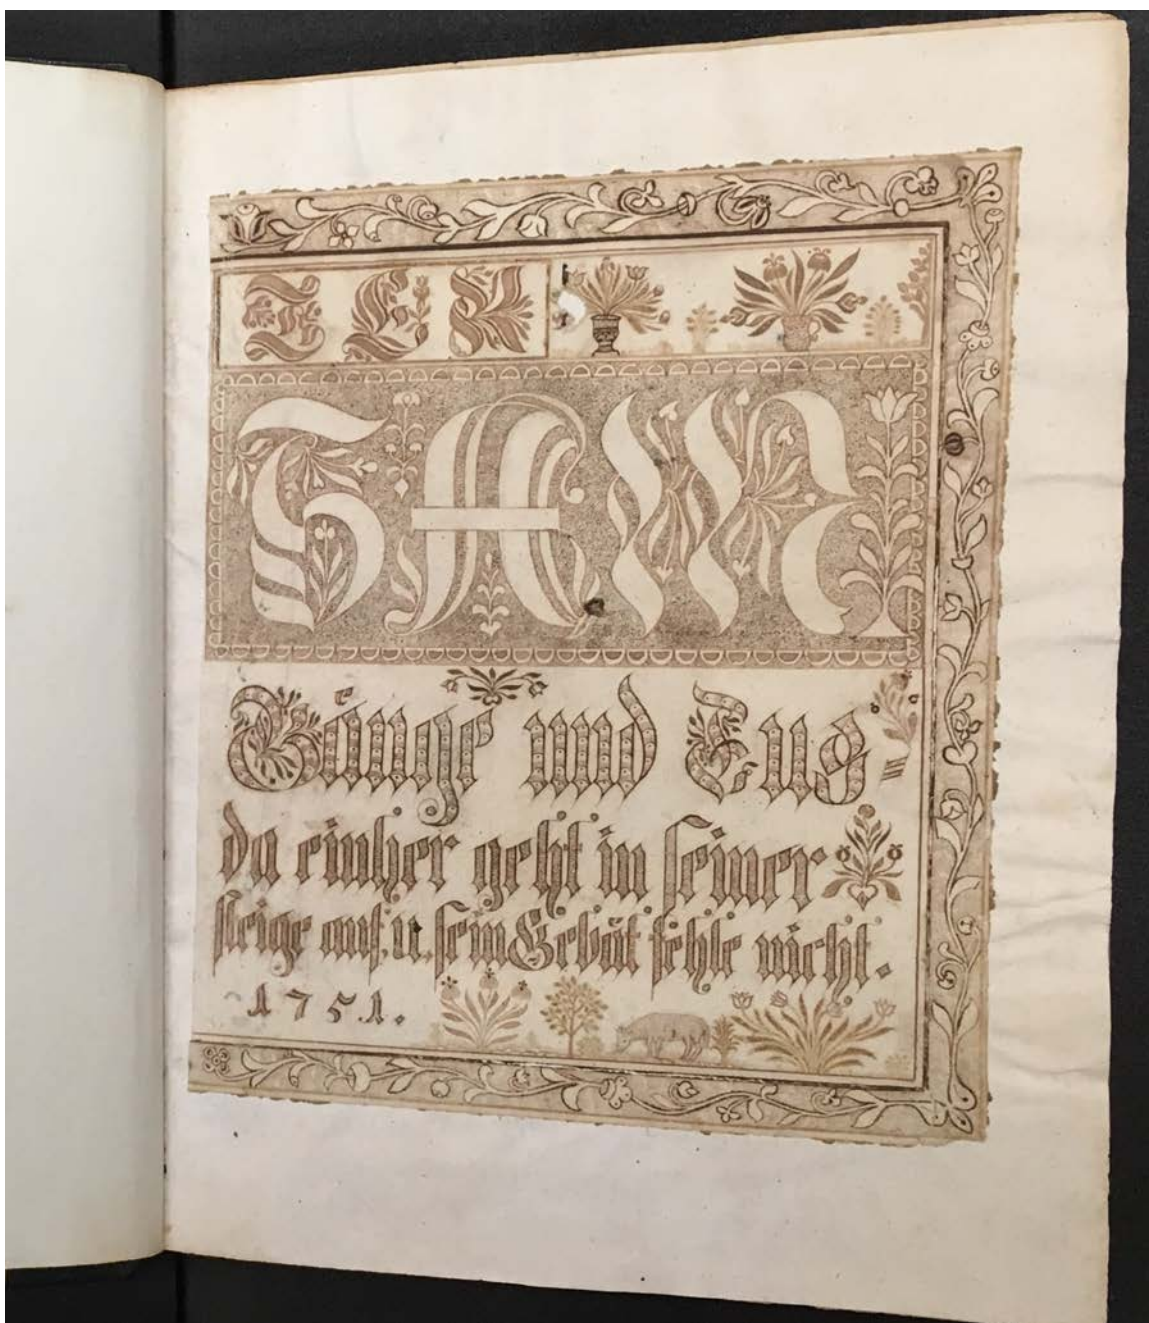 SAM
Gänge und Tug=
da einher geht in seiner
steige auf. u. sein Gebät fehle nicht.
1751.